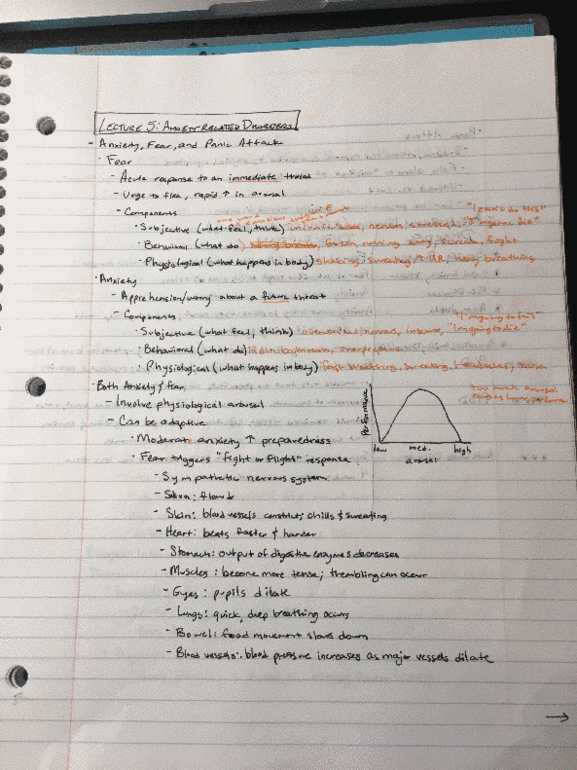 LECTURE 5: ANXIETY-RELATED DISORDERS
- Anxiety, Fear, and Panic Attack
· Fear
- Acute response to an immediate threat
- Urge to flee, rapid ↑ in arousal
- Components
"I can't do this"
· Subjective (what feel, think) nervous, stressed, "I'm gonna die"
· Behavioral (what do) running away, fight
· Physiological (what happens in body) shaking, sweating, ↑ HR, heavy breathing
· Anxiety
- Apprehension/worry about a future threat
- Components
"I'm going to fail"
· Subjective (what feel, think) nervous, insecure, "I'm going to die"
· Behavioral (what do)
· Physiological (what happens in body) fast breathing, sweating, headaches, nausea
· Both Anxiety & fear
too much arousal
- Involve physiological arousal
- Can be adaptive
· Moderate anxiety ↑ preparedness
Performance
low med. high
arousal
· Fear triggers "fight or flight" response
- Sympathetic nervous system
- Saliva: flow ↓
- Skin: blood vessels constrict; chills & sweating
- Heart: beats faster & harder
- Stomach: output of digestive enzymes decreases
- Muscles: become more tense; trembling can occur
- Eyes: pupils dilate
- Lungs: quick, deep breathing occurs
- Bowel: food movement slows down
- Blood vessels: blood pressure increases as major vessels dilate
→